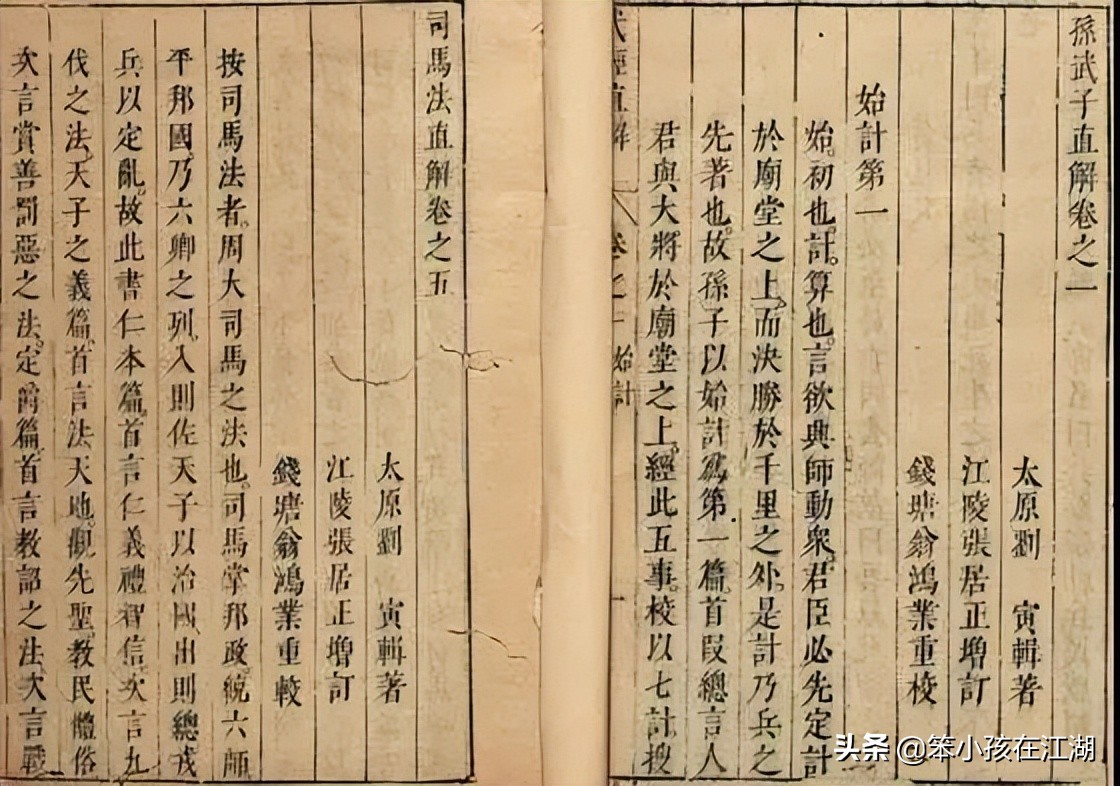 孫武子直解卷之一
太原劉 寅輯著
江陵張居正增訂
錢塘翁鴻業重校
始計第一
始初也計算也言欲興師動衆君臣必先定計
於廟堂之上而決勝於千里之外是計乃兵之
先著也故孫子以始計爲第一篇首段總言人
君與大將於廟堂之上經此五事校以七計搜
經直解 卷之一 始計 一
司馬法直解卷之五
太原劉 寅輯著
江陵張居正增訂
錢塘翁鴻業重較
按司馬法者周大司馬之法也司馬掌邦政統六師
平邦國乃六卿之列入則佐天子以治國出則總戎
兵以定亂故此書仁本篇首言仁義禮智信次言九
伐之法天子之義篇首言法天地觀先聖教民體俗
次言賞善罰惡之法定爵篇首言教詔之法次言戰
头条 @笨小孩在江湖